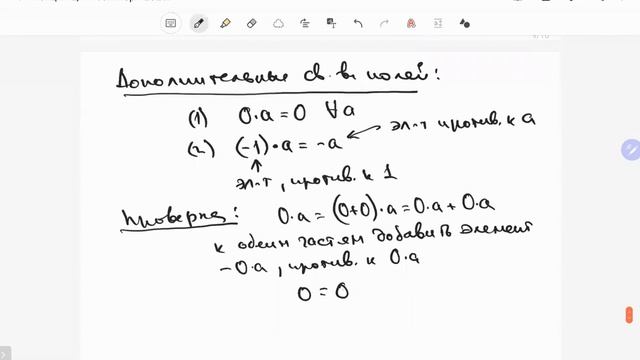 Дополнительные св-ва полей:
(1) 0·a = 0 ∀a
(2) (-1)·a = -a ← эл-т против. к a
эл-т, против. к 1
Проверка: 0·a = (0+0)·a = 0·a + 0·a
к обеим частям добавить элемент
-0·a, против. к 0·a
0 = 0